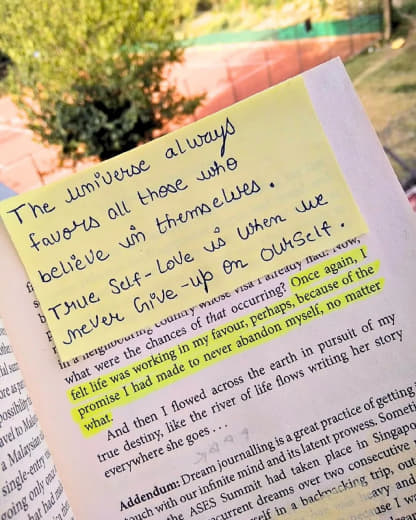 The universe always
favors all those who
believe in themselves.
True Self-Love is when we
never Give-up on OurSelf.
in a neighbouring country whose visa I already had. Now,
what were the chances of that occurring? Once again, I
felt life was working in my favour, perhaps, because of the
promise I had made to never abandon myself, no matter
what.
And then I flowed across the earth in pursuit of my
true destiny, like the river of life flows writing her story
everywhere she goes . . .
Addendum: Dream journalling is a great practice of getting
touch with our infinite mind and its latent prowess. Some
the ASES Summit had taken place in Singapo
current dreams over two consecutive
self in a backpacking trip, out
heavy and
use I w
possibility
avel to Mala
a Malaysian
single-entry
going only on
that had